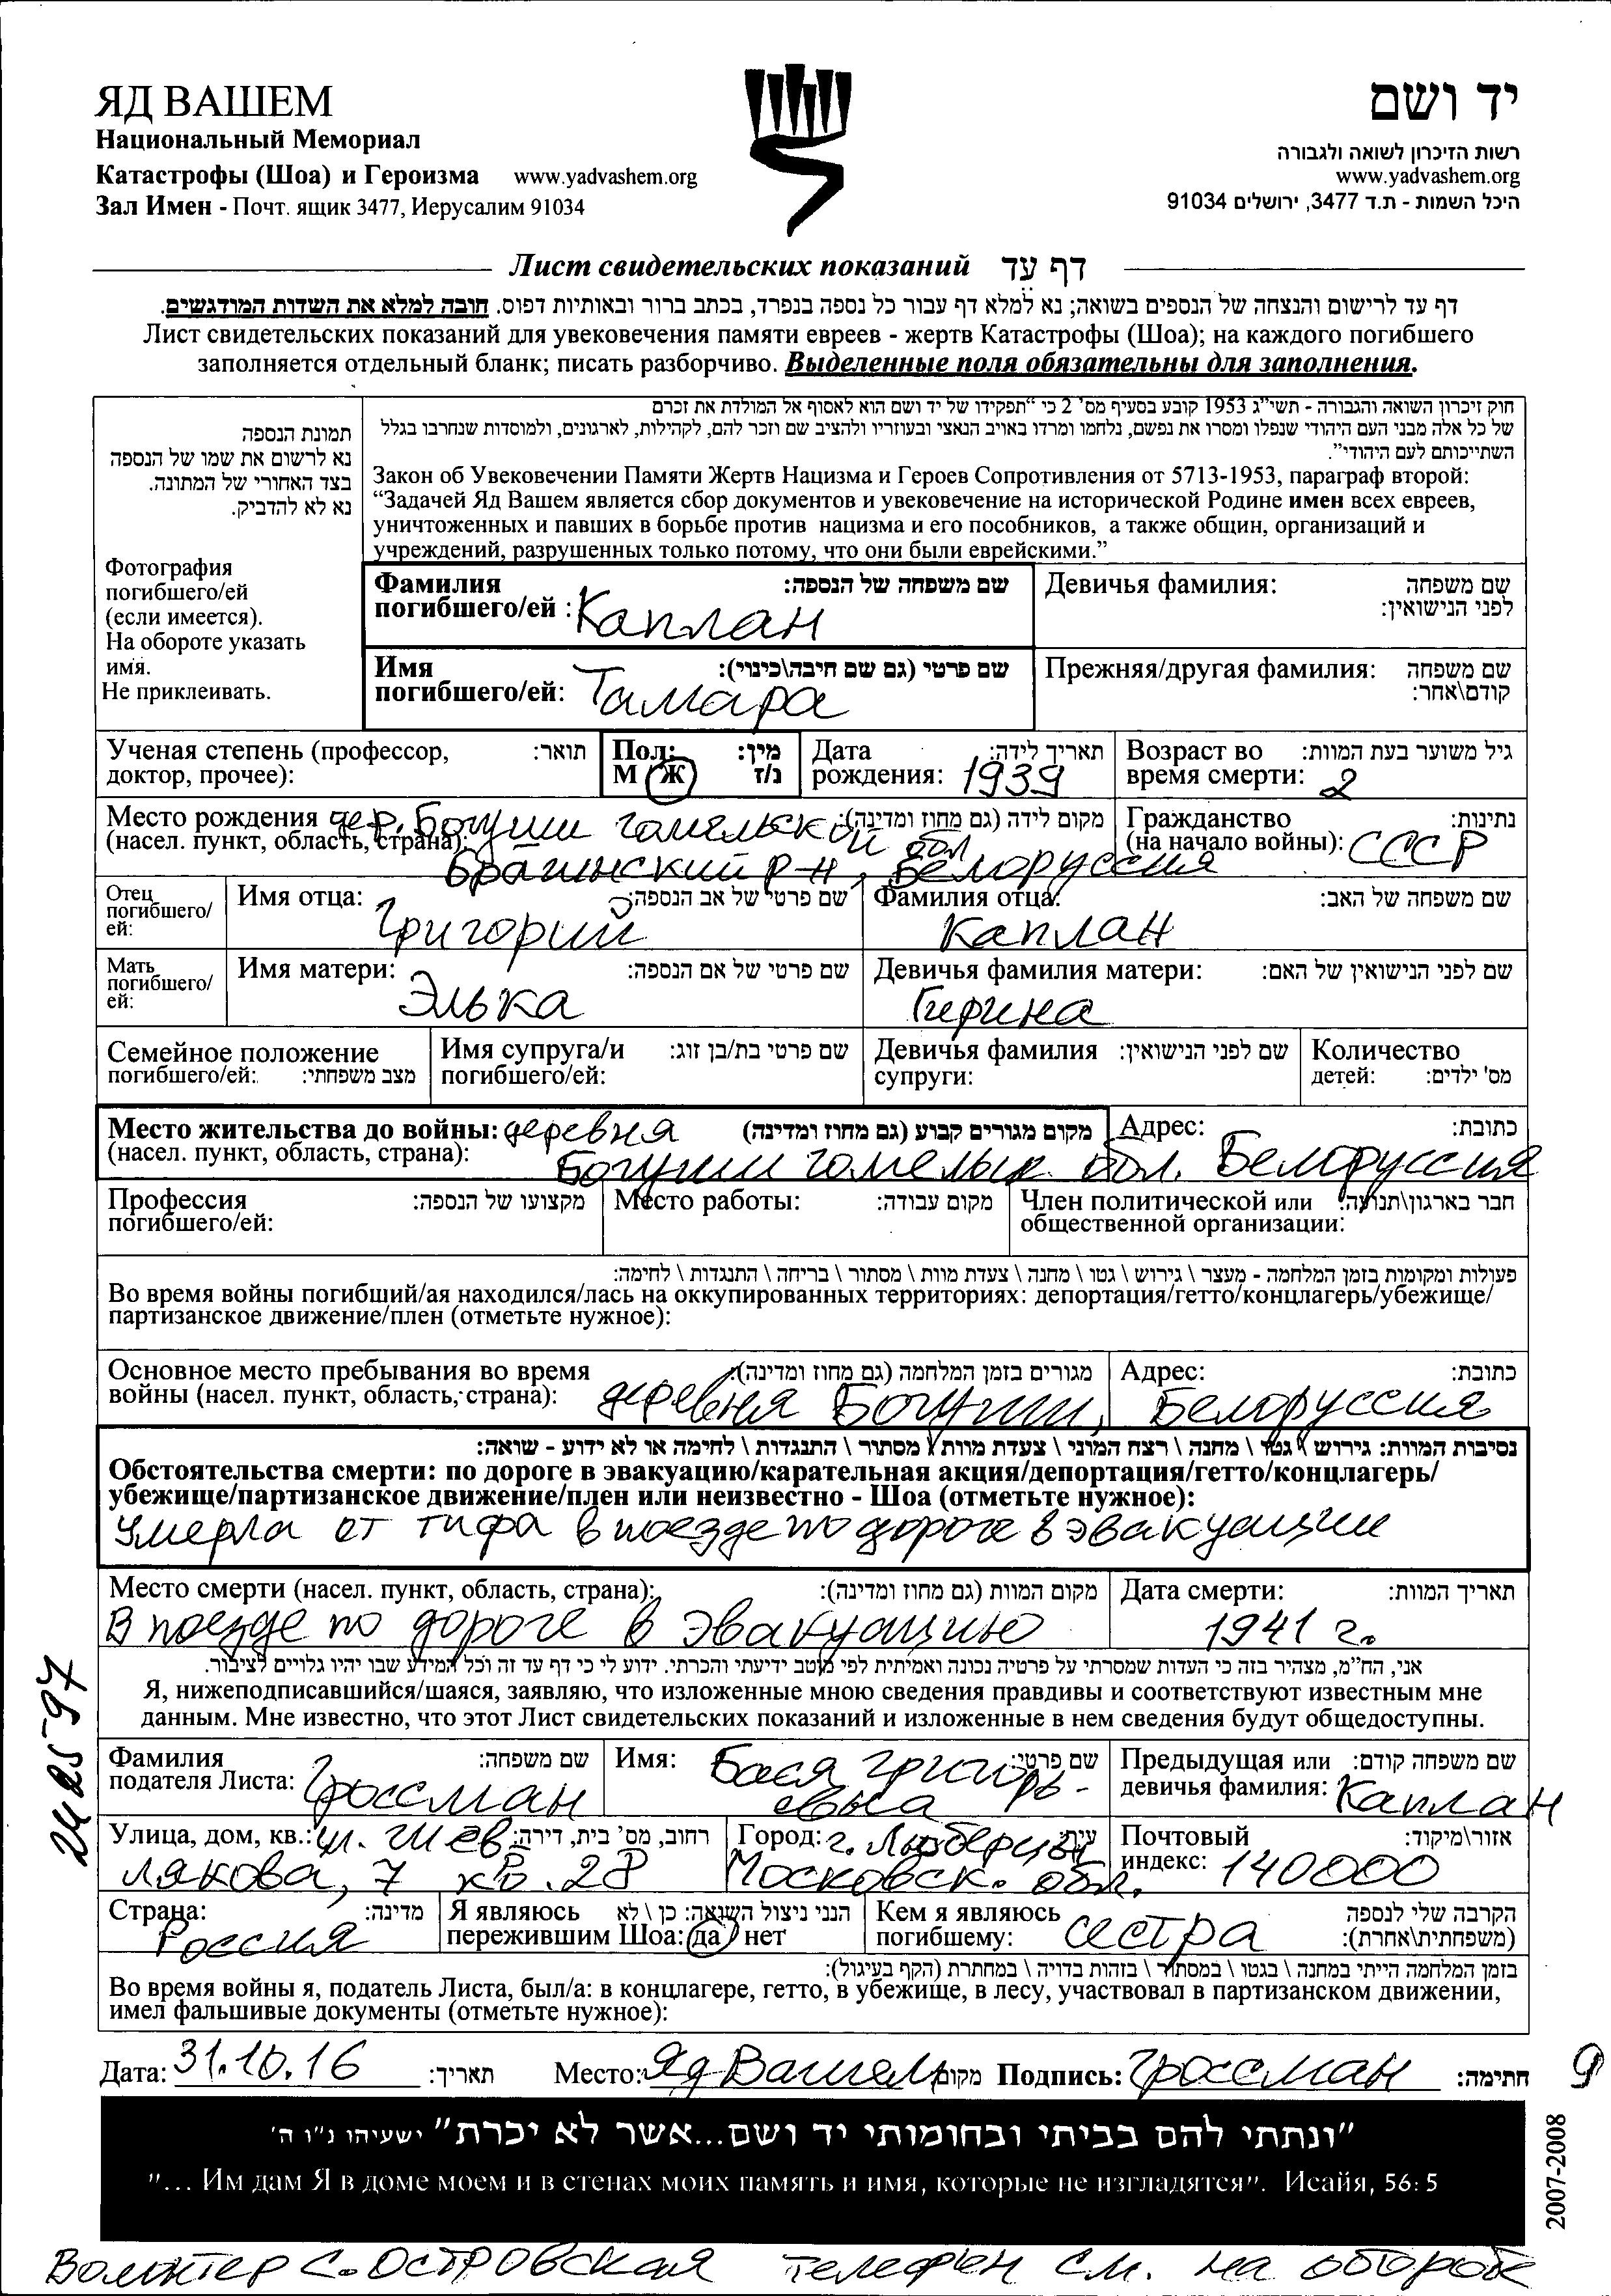 ЯД ВАШЕМ
Национальный Мемориал
Катастрофы (Шоа) и Героизма www.yadvashem.org
Зал Имен - Почт. ящик 3477, Иерусалим 91034
יד ושם
רשות הזיכרון לשואה ולגבורה
www.yadvashem.org
היכל השמות - ת.ד 3477, ירושלים 91034
Лист свидетельских показаний דף עד
דף עד לרישום והנצחה של הנספים בשואה; נא למלא דף עבור כל נספה בנפרד, בכתב ברור ובאותיות דפוס. חובה למלא את השדות המודגשים.
Лист свидетельских показаний для увековечения памяти евреев - жертв Катастрофы (Шоа); на каждого погибшего
заполняется отдельный бланк; писать разборчиво. Выделенные поля обязательны для заполнения.
תמונת הנספה
נא לרשום את שמו של הנספה
בצד האחורי של התמונה.
נא לא להדביק.
Фотография
погибшего/ей
(если имеется).
На обороте указать
имя.
Не приклеивать.
חוק זיכרון השואה והגבורה - תשי"ג 1953 קובע בסעיף מס' 2 כי "תפקידו של יד ושם הוא לאסוף אל המולדת את זכרם
של כל אלה מבני העם היהודי שנפלו ומסרו את נפשם, נלחמו ומרדו באויב הנאצי ובעוזריו ולהציב שם וזכר להם, לקהילות, לארגונים, ולמוסדות שנחרבו בגלל
השתייכותם לעם היהודי".
Закон об Увековечении Памяти Жертв Нацизма и Героев Сопротивления от 5713-1953, параграф второй:
“Задачей Яд Вашем является сбор документов и увековечение на исторической Родине имен всех евреев,
уничтоженных и павших в борьбе против нацизма и его пособников, а также общин, организаций и
учреждений, разрушенных только потому, что они были еврейскими.”
Фамилия שם משפחה של הנספה:
погибшего/ей : Каплан
Девичья фамилия: שם משפחה
לפני הנישואין:
Имя שם פרטי (גם שם חיבה\כינוי):
погибшего/ей: Тамара
Прежняя/другая фамилия: שם משפחה
קודם\אחר:
Ученая степень (профессор, תואר:
доктор, прочее):
Пол: מין:
М Ж ז/נ
Дата תאריך לידה:
рождения: 1939
Возраст во גיל משוער בעת המוות:
время смерти: 2
Место рождения дер. Богуши гомельской обл מקום לידה (גם מחוז ומדינה):
(насел. пункт, область, страна): Брагинский р-н, Белоруссия
Гражданство נתינות:
(на начало войны): СССР
Отец
погибшего/
ей:
Имя отца: שם פרטי של אב הנספה:
Григорий
Фамилия отца: שם משפחה של האב:
Каплан
Мать
погибшего/
ей:
Имя матери: שם פרטי של אם הנספה:
Элька
Девичья фамилия матери: שם לפני הנישואין של האם:
Гирина
Семейное положение
погибшего/ей: מצב משפחתי:
Имя супруга/и שם פרטי בת/בן זוג:
погибшего/ей:
Девичья фамилия שם לפני הנישואין:
супруги:
Количество
детей: מס' ילדים:
Место жительства до войны: деревня מקום מגורים קבוע (גם מחוז ומדינה)
(насел. пункт, область, страна): Богуши гомельск. обл. Белоруссия
Адрес: כתובת:
Профессия מקצועו של הנספה:
погибшего/ей:
Место работы: מקום עבודה:
Член политической или חבר בארגון\תנועה:
общественной организации:
פעולות ומקומות בזמן המלחמה - מעצר \ גירוש \ גטו \ מחנה \ צעדת מוות \ מסתור \ בריחה \ התנגדות \ לחימה:
Во время войны погибший/ая находился/лась на оккупированных территориях: депортация/гетто/концлагерь/убежище/
партизанское движение/плен (отметьте нужное):
Основное место пребывания во время מגורים בזמן המלחמה (גם מחוז ומדינה):
войны (насел. пункт, область, страна): деревня Богуши,
Адрес: כתובת:
Белоруссия
נסיבות המוות: גירוש \ גטו \ מחנה \ רצח המוני \ צעדת מוות \ מסתור \ התנגדות \ לחימה או לא ידוע - שואה:
Обстоятельства смерти: по дороге в эвакуацию/карательная акция/депортация/гетто/концлагерь/
убежище/партизанское движение/плен или неизвестно - Шоа (отметьте нужное):
Умерла от тифа в поезде по дороге в эвакуации
Место смерти (насел. пункт, область, страна): מקום המוות (גם מחוז ומדינה):
В поезде по дороге в эвакуацию
Дата смерти: תאריך המוות:
1941 г.
אני, הח"מ, מצהיר בזה כי העדות שמסרתי על פרטיה נכונה ואמיתית לפי מיטב ידיעתי והכרתי. ידוע לי כי דף עד זה וכל המידע שבו יהיו גלויים לציבור.
Я, нижеподписавшийся/шаяся, заявляю, что изложенные мною сведения правдивы и соответствуют известным мне
данным. Мне известно, что этот Лист свидетельских показаний и изложенные в нем сведения будут общедоступны.
Фамилия שם משפחה:
подателя Листа: Гроссман
Имя: Бася Григорь- שם פרטי:
евна
Предыдущая или שם משפחה קודם:
девичья фамилия: Каплан
Улица, дом, кв.: ул. Шев רחוב, מס' בית, דירה:
лякова, 7 кв. 28
Город: г. Люберцы עיר:
Московск. обл.
Почтовый אזור\מיקוד:
индекс: 140000
Страна: מדינה:
Россия
Я являюсь הנני ניצול השואה: כן \ לא
пережившим Шоа: да нет
Кем я являюсь הקרבה שלי לנספה
погибшему: сестра (משפחתית\אחרת):
בזמן המלחמה הייתי במחנה \ בגטו \ במסתור \ בזהות בדויה \ במחתרת (הקף בעיגול):
Во время войны я, податель Листа, был/а: в концлагере, гетто, в убежище, в лесу, участвовал в партизанском движении,
имел фальшивые документы (отметьте нужное):
Дата: 31.10.16 תאריך: Место: Яд Вашем מקום Подпись: Гроссман חתימה:
9
"ונתתי להם בביתי ובחומותי יד ושם...אשר לא יכרת" ישעיהו נ"ו ה'
"... Им дам Я в доме моем и в стенах моих память и имя, которые не изгладятся". Исайя, 56: 5
2007-2008
Волонтер С. Островская телефон см. на обороте